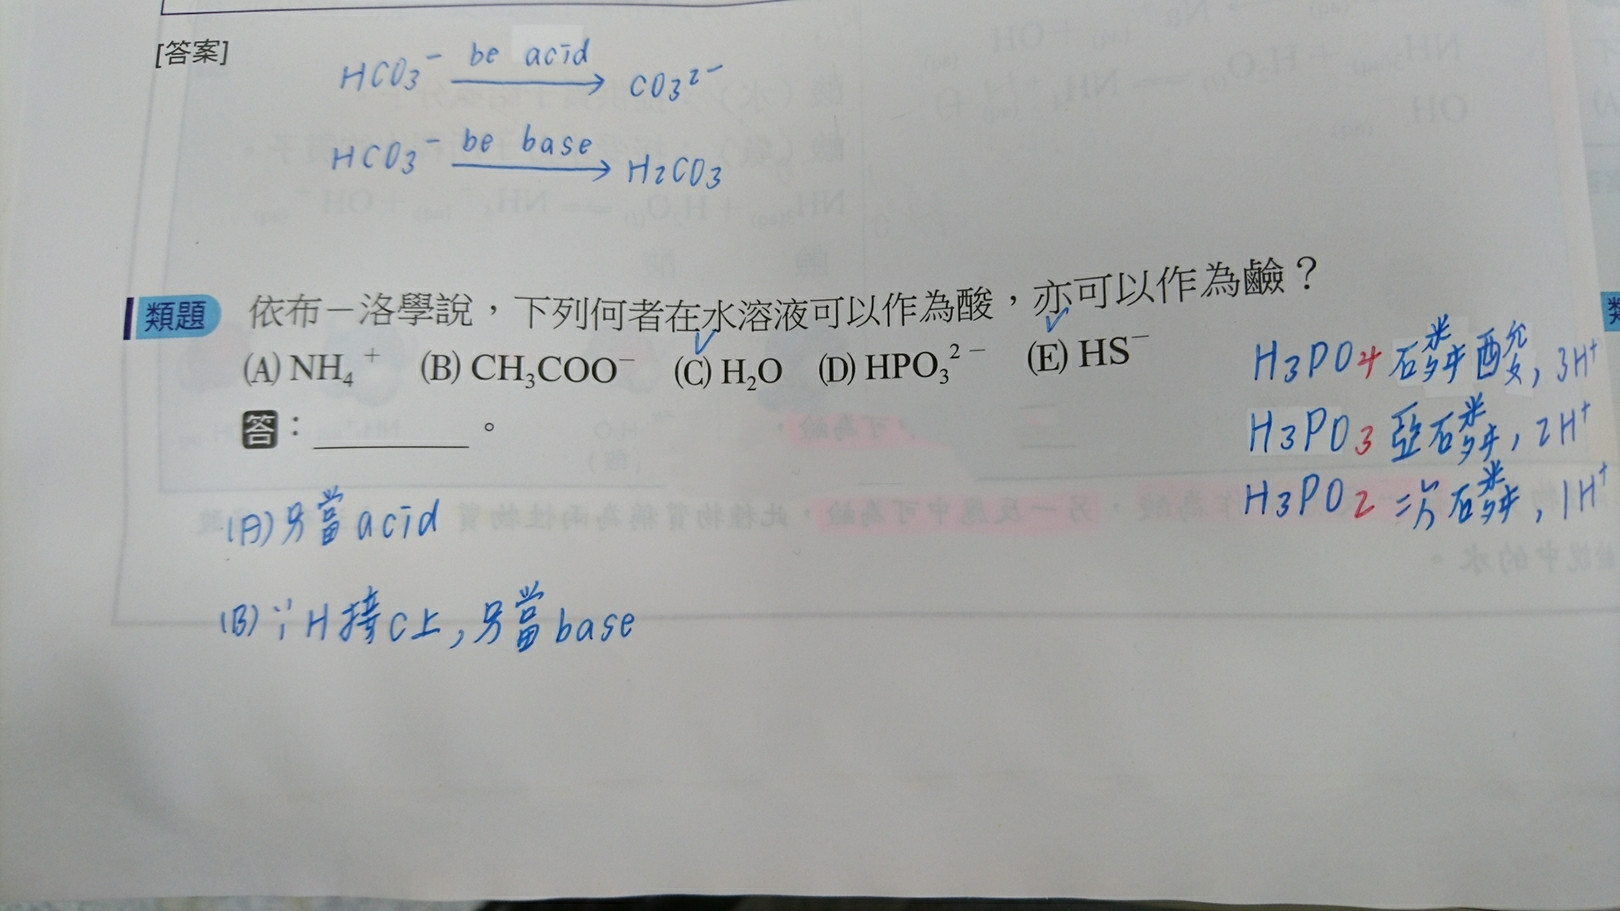 [答案]
HCO₃⁻ be acid → CO₃²⁻
HCO₃⁻ be base → H₂CO₃
類題 依布－洛學說，下列何者在水溶液可以作為酸，亦可以作為鹼？
(A) NH₄⁺ (B) CH₃COO⁻ (C) H₂O (D) HPO₃²⁻ (E) HS⁻
答：________。
H₃PO₄ 磷酸, 3H⁺
H₃PO₃ 亞磷, 2H⁺
H₃PO₂ 次磷, 1H⁺
(A) 只當 acid
(B) ∵ H接C上, 只當 base